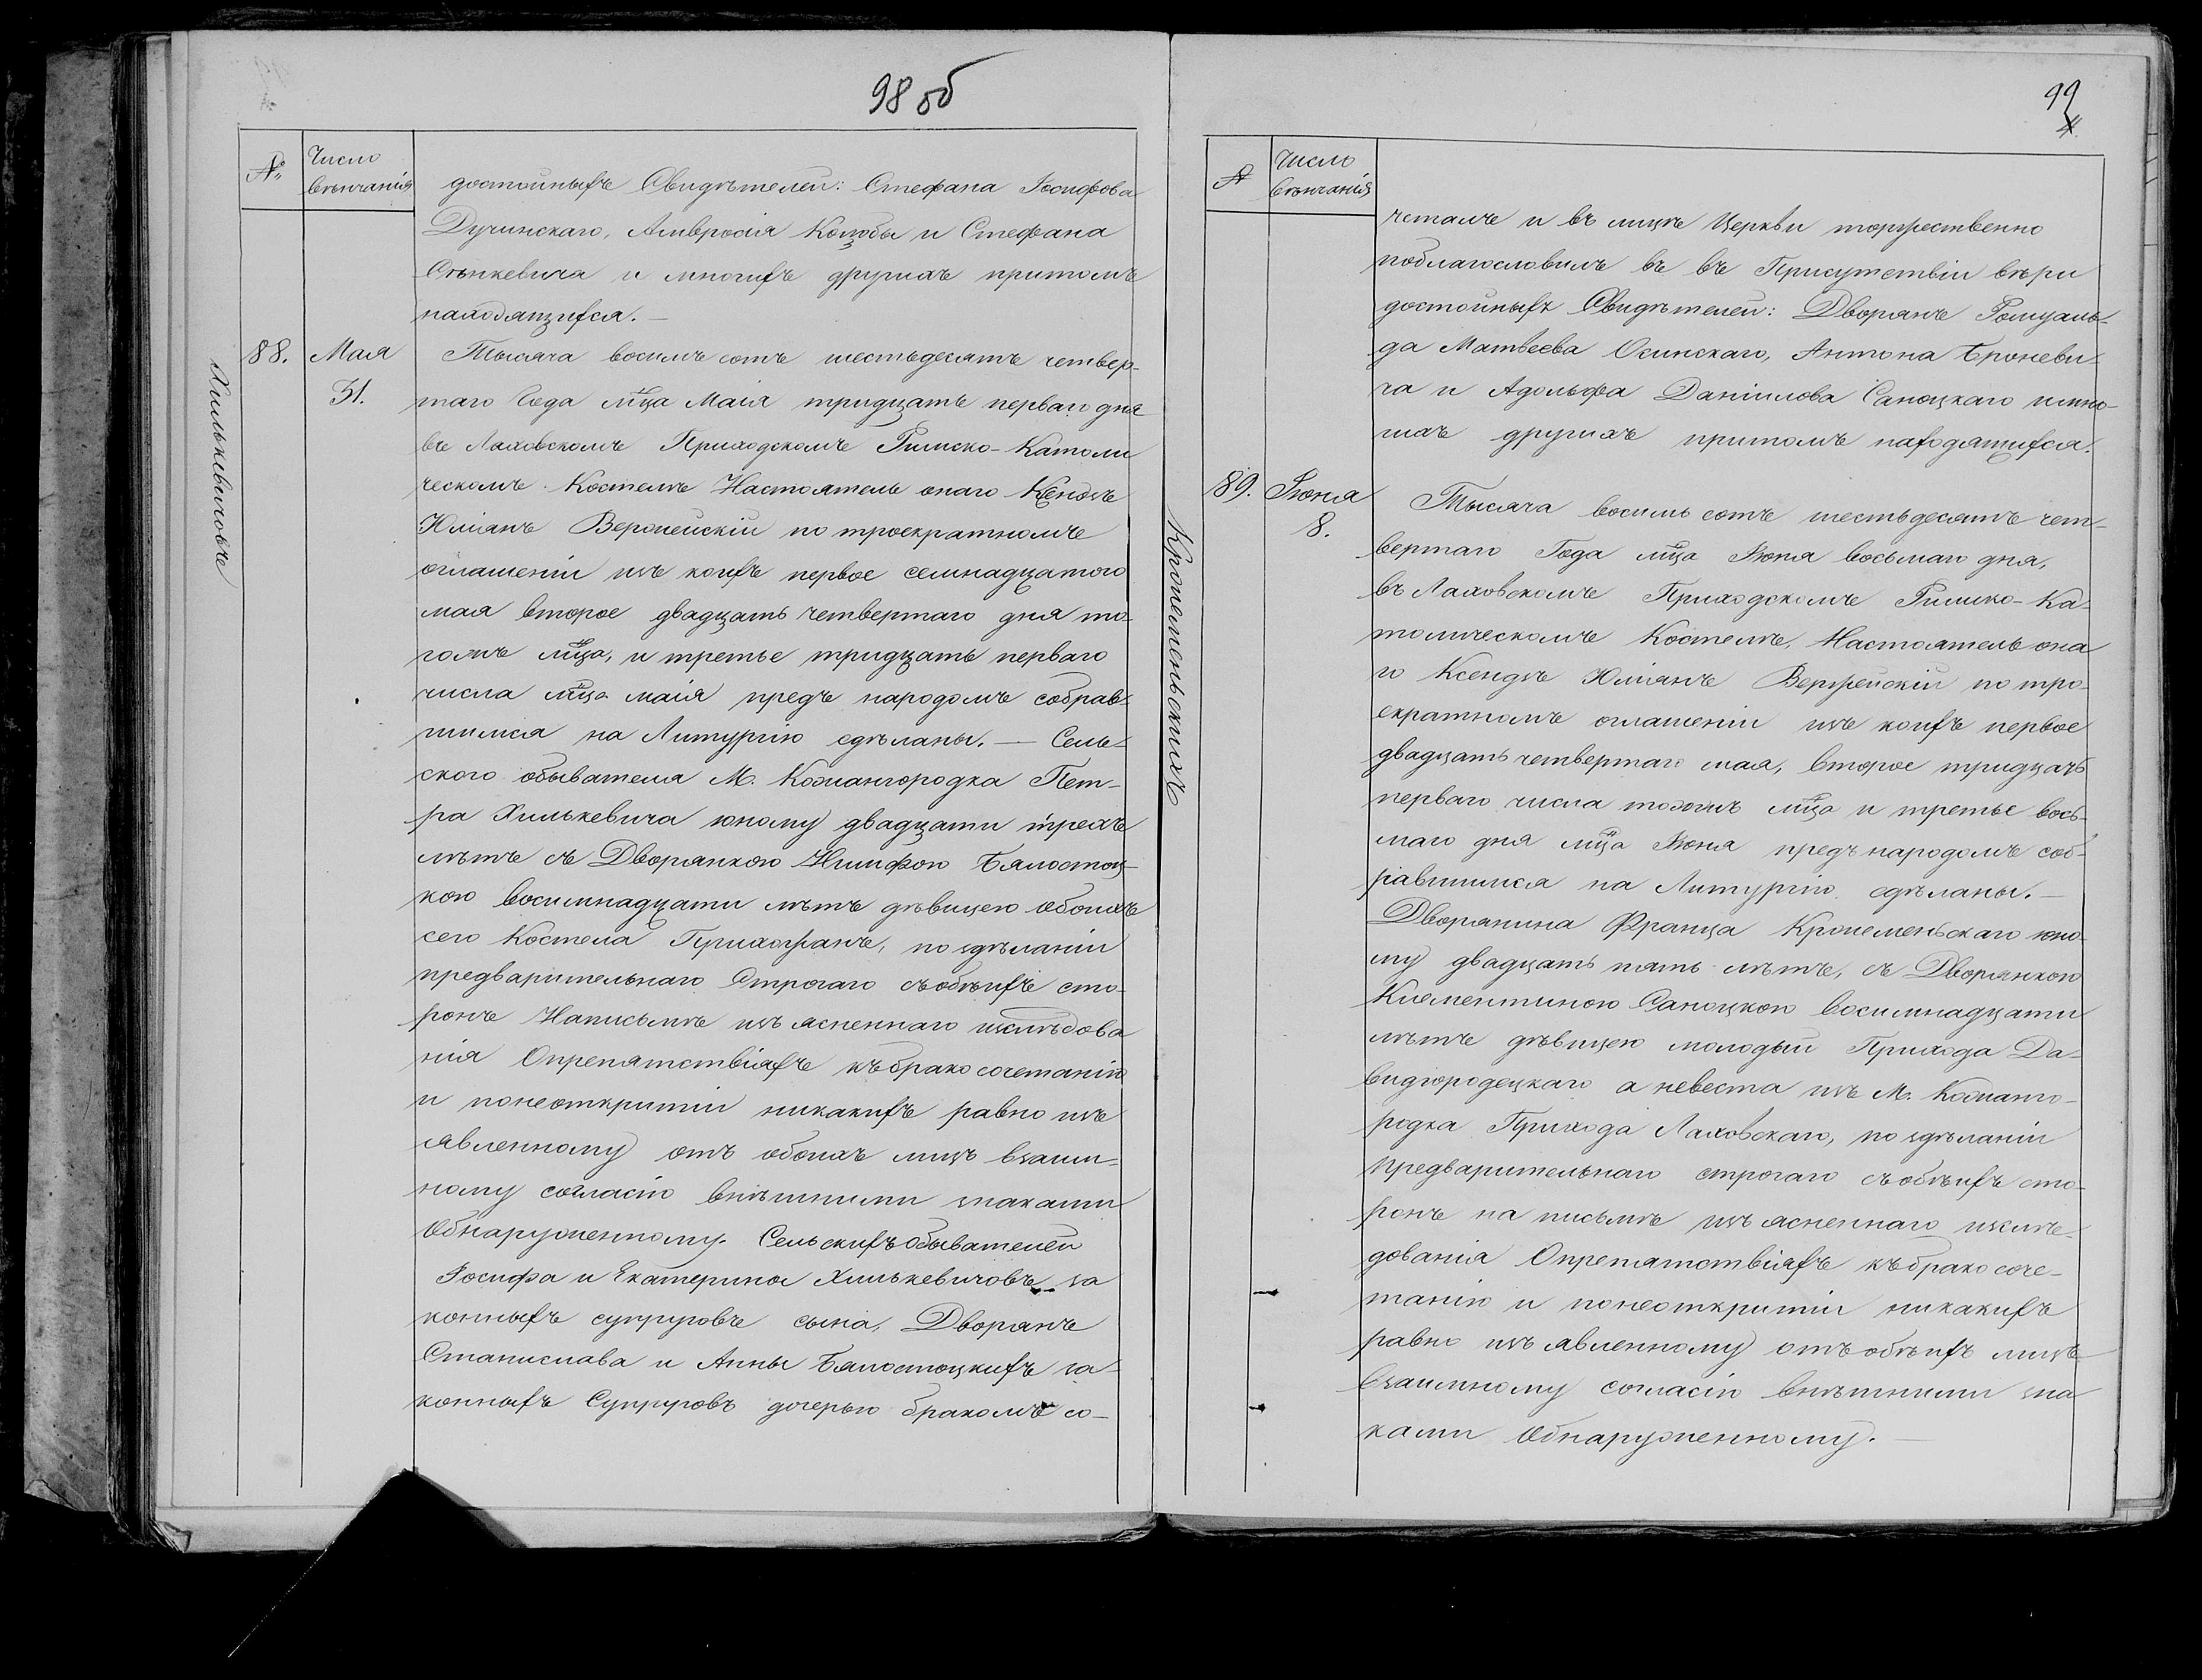 98 об
№ Число
вѣнчанія
достойныхъ Свидѣтелей: Стефана Іосифова
Дучинскаго, Амвросія Коцюбы и Стефана
Стынкевича и многихъ другихъ притомъ
находящихся. —
Хилькевичовъ
88. Мая
31.
Тысяча восимъ сотъ шестьдесятъ четвер-
таго Года мца Маія тридцать перваго дня
въ Лаховскомъ Приходскомъ Римско-Католи
ческомъ Костелѣ Настоятель онаго Ксендзъ
Юліанъ по троекратномъ
оглашеніи изъ коихъ первое семнадцатого
мая второе двадцать четвертаго дня то-
гожъ мца, и третье тридцать перваго
числа мца маія предъ народомъ собрав-
шимся на Литургію сдѣланы. — Сель-
ского обывателя М. Кожангородка Пет-
ра Хилькевича юному двадцати трехъ
лѣтъ съ Дворянкою Нимфою Бялостоц-
кою восимнадцати лѣтъ дѣвицею обоихъ
сего Костела Прихожанъ, по здѣланіи
предварительнаго Строгаго съобѣихъ сто-
ронъ Написьмѣ изъясненнаго изслѣдова
нія Опрепятствіяхъ къбрако сочетанію
и понеоткритіи никакихъ равно изъ
явленному отъ обоихъ лицъ взаим-
ному согласію внѣшними знаками
Обнаруженному. Сельскихъ Обывателей
Іосифа и Екатерины Хилькевичовъ за
конныхъ супруговъ сына, Дворянъ
Станислава и Анны Бялостоцкихъ за-
конныхъ Супруговъ дочерью бракомъ со-
99
№ Число
вѣнчанія
четалъ и въ лицѣ Церкви торжественно
поблагословилъ въ въ Присутствіи вѣри
достойныхъ Свидѣтелей: Дворянъ Ромуаль-
да Матвѣева Осинскаго, Антона Броневи-
ча и Адольфа Даніилова Саноцкаго имно-
гихъ другихъ притомъ находящихся.
Кропеменьскихъ
89. Іюня
8.
Тысяча восимь сотъ шестьдесятъ чет-
вертаго Года мца Іюня восьмаго дня,
въ Лаховскомъ Приходскомъ Римско-Ка-
толическомъ Костелѣ, Настоятель она
го Ксендзъ Юліанъ по тро-
екратномъ оглашеніи изъ коихъ первое
двадцать четвертаго мая, второе тридцать
перваго числа тогожъ мца и третье вось-
маго дня мца Іюня предъ народомъ соб-
равшимся на Литургію сдѣланы. —
Дворянина Франца Кропеменьскаго юно-
му двадцать пять лѣтъ, съ Дворянкою
Клементиною Саноцкою восимнадцати
лѣтъ дѣвицею молодый Прихода Да-
видгородецкаго а невеста изъ М. Кожанго-
родка Прихода Лаховскаго, по здѣланіи
предварительнаго строгаго съобѣихъ сто-
ронъ на письмѣ изъясненнаго изслѣ-
дованія Опрепятствіяхъ къбрако соче-
танію и понеоткритіи никакихъ
равно изъ явленному отъ обѣихъ лицъ
Взаимному согласію внѣшними зна
ками Обнаруженному. —